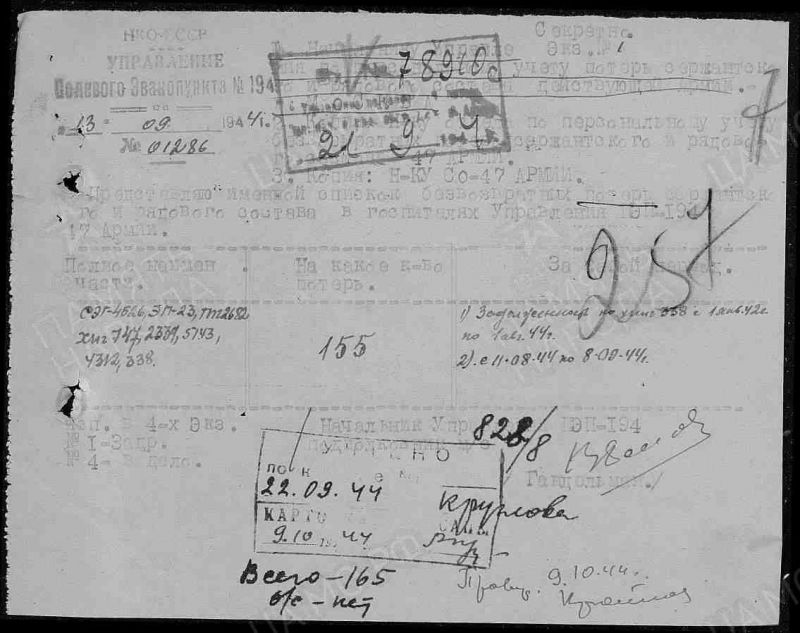 НКО-СССР
УПРАВЛЕНИЕ
Полевого Эвакопункта № 194
13 09 1944г.
№ 01286
Секретно.
Экз. № 1
78940с
21 9 4
учету потерь сержантско
го и рядового состава действующей армии.-
по персональному учету
сержантского и рядово
47 АРМИИ.
3. Копия: Н-КУ СО-47 АРМИИ.
Представляю именной список безвозвратных потерь сержантск
ого и рядового состава в госпиталях Управления ПЭП-194
47 Армии.
257
Полное наимен
части.
На какое к-во
потерь.
За какой период.
СЭГ-4626, ЭП-23, ППГ2682
ХППГ 747, 2339, 5143,
4312, 338.
155
1) Задолженность по ХППГ 338 с 1 янв. 42г.
по 1 авг. 44г.
2). с 11-08-44 по 8-09-44г.
Нап. в 4-х Экз.
№ 1-Задр.
№ 4- в дело.
Начальник Упр ПЭП-194
подполковник м/с
/ Гандольман./
828/8
УЧТЕНО
22.09.44
Круглова
КАРТО
9.10 1944
Всего-165
о/с-нет
Провер. 9.10.44г.